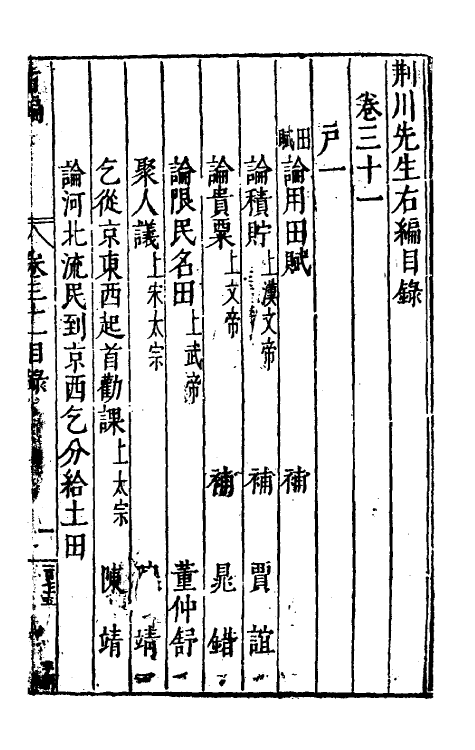 荆川先生右編目錄
卷三十一
戶一
田賦論用田賦 補
論積貯上漢文帝 補 賈誼
論貴粟上文帝 補 晁錯
論限民名田上武帝 董仲舒
聚人議上宋太宗 靖
乞從京東西起首勸課上太宗 陳靖
論河北流民到京西乞分給土田
右編 卷三十一目錄 一